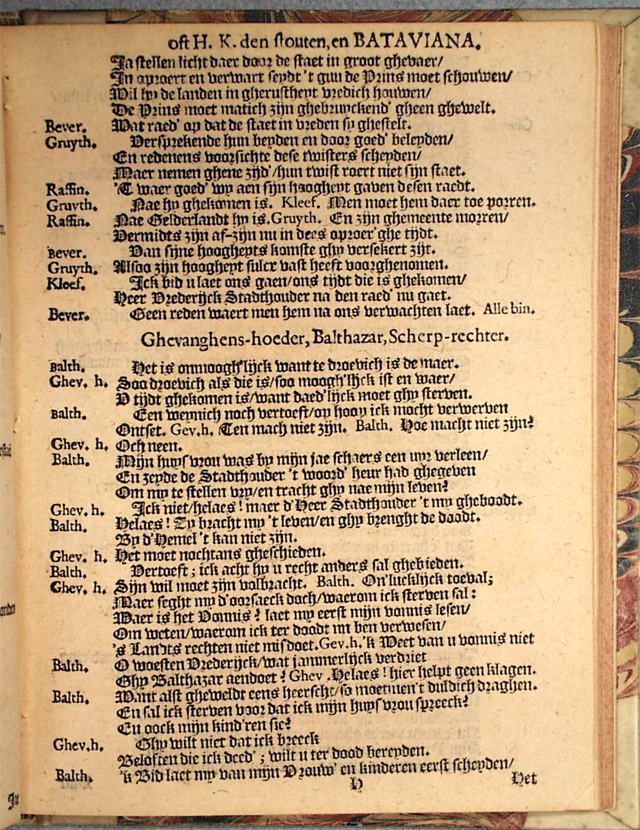 oft H. K. den stouten, en BATAVIANA.
Ja stellen licht daer door de staet in groot ghevaer/
In oproert en verwart seydt 't guu de Prins moet schouwen/
Wil hy de landen in gherustheyt vredich houwen/
De Prins moet matich zijn ghebruyckend' gheen ghewelt.
Bever. Wat raed' op dat de staet in vreden sy ghestelt.
Gruyth. Versprekende hun beyden en door goed' beleyden/
En redenens voorsichte dese twisters scheyden/
Maer nemen ghene zijd'/hun twist roert niet sijn staet.
Raffin. 'T waer goed' wy aen sijn hoogheyt gaven desen raedt.
Gruyth. Nae hy ghekomen is. Kleef. Men moet hem daer toe porren.
Raffin. Nae Gelderlandt hy is. Gruyth. En zijn ghemeente morren/
Vermidts zijn af-zijn nu in dees oproer'ghe tijdt.
Bever. Van sijne hoogheyts komste ghy versekert zijt.
Gruyth. Alsoo zijn hoogheyt sulcx vast heeft voorghenomen.
Kleef. Ick bid u laet ons gaen/ons tijdt die is ghekomen/
Heer Vrederijck Stadthouder na den raed' nu gaet.
Bever. Geen reden waert men hem na ons verwachten laet. Alle bin.
Ghevanghens-hoeder, Balthazar, Scherp-rechter.
Balth. Het is onmoogh'lijck want te droevich is de maer.
Ghev. h. Soo droevich als die is/soo moogh'lijck ist en waer/
D tijdt ghekomen is/want daed'lijck moet ghy sterven.
Balth. Een weynich noch vertoeft/op hoop ick mocht verwerven
Ontset. Gev.h. Ten mach niet zijn. Balth. Hoe macht niet zijn?
Ghev. h. Och neen.
Balth. Mijn huysvrou was by mijn jae schaers een uyr verleen/
En zeyde de Stadthouder 't woord' heur had ghegeven
Om my te stellen vry/en tracht ghy nae mijn leven?
Ghev. h. Ick niet/helaes! maer d'Heer Stadthouder 't my gheboodt.
Balth. Helaes! Sy bracht my 't leven/en ghy brenght de doodt.
By d'Hemel 't kan niet zijn.
Ghev. h. Het moet nochtans gheschieden.
Balth. Vertoeft; ick acht hy u recht anders sal ghebieden.
Ghev. h. Sijn wil moet zijn volbracht. Balth. On'lucklijck toeval;
Maer seght my d'oorsaeck doch/waerom ick sterven sal:
Waer is het Vonnis? laet my eerst mijn vonnis lesen/
Om weten/waerom ick ter doodt nu ben verwesen/
's Landts rechten niet misdoet. Gev.h. 'k Weet van u vonnis niet
Balth. O woesten Vrederijck/wat jammerlijck verdriet
Ghy Balthazar aendoet? Ghev. Helaes! hier helpt geen klagen.
Balth. Want alst gheweldt eens heerscht/so moetmen't duldich draghen.
En sal ick sterven voor dat ick mijn huysvrou spreeck?
En oock mijn kind'ren sie?
Ghev.h. Ghy wilt niet dat ick breeck
Beloften die ick deed'; wilt u ter dood bereyden.
Balth. 'k Bid laet my van mijn Vrouw' en kinderen eerst scheyden/
H Het